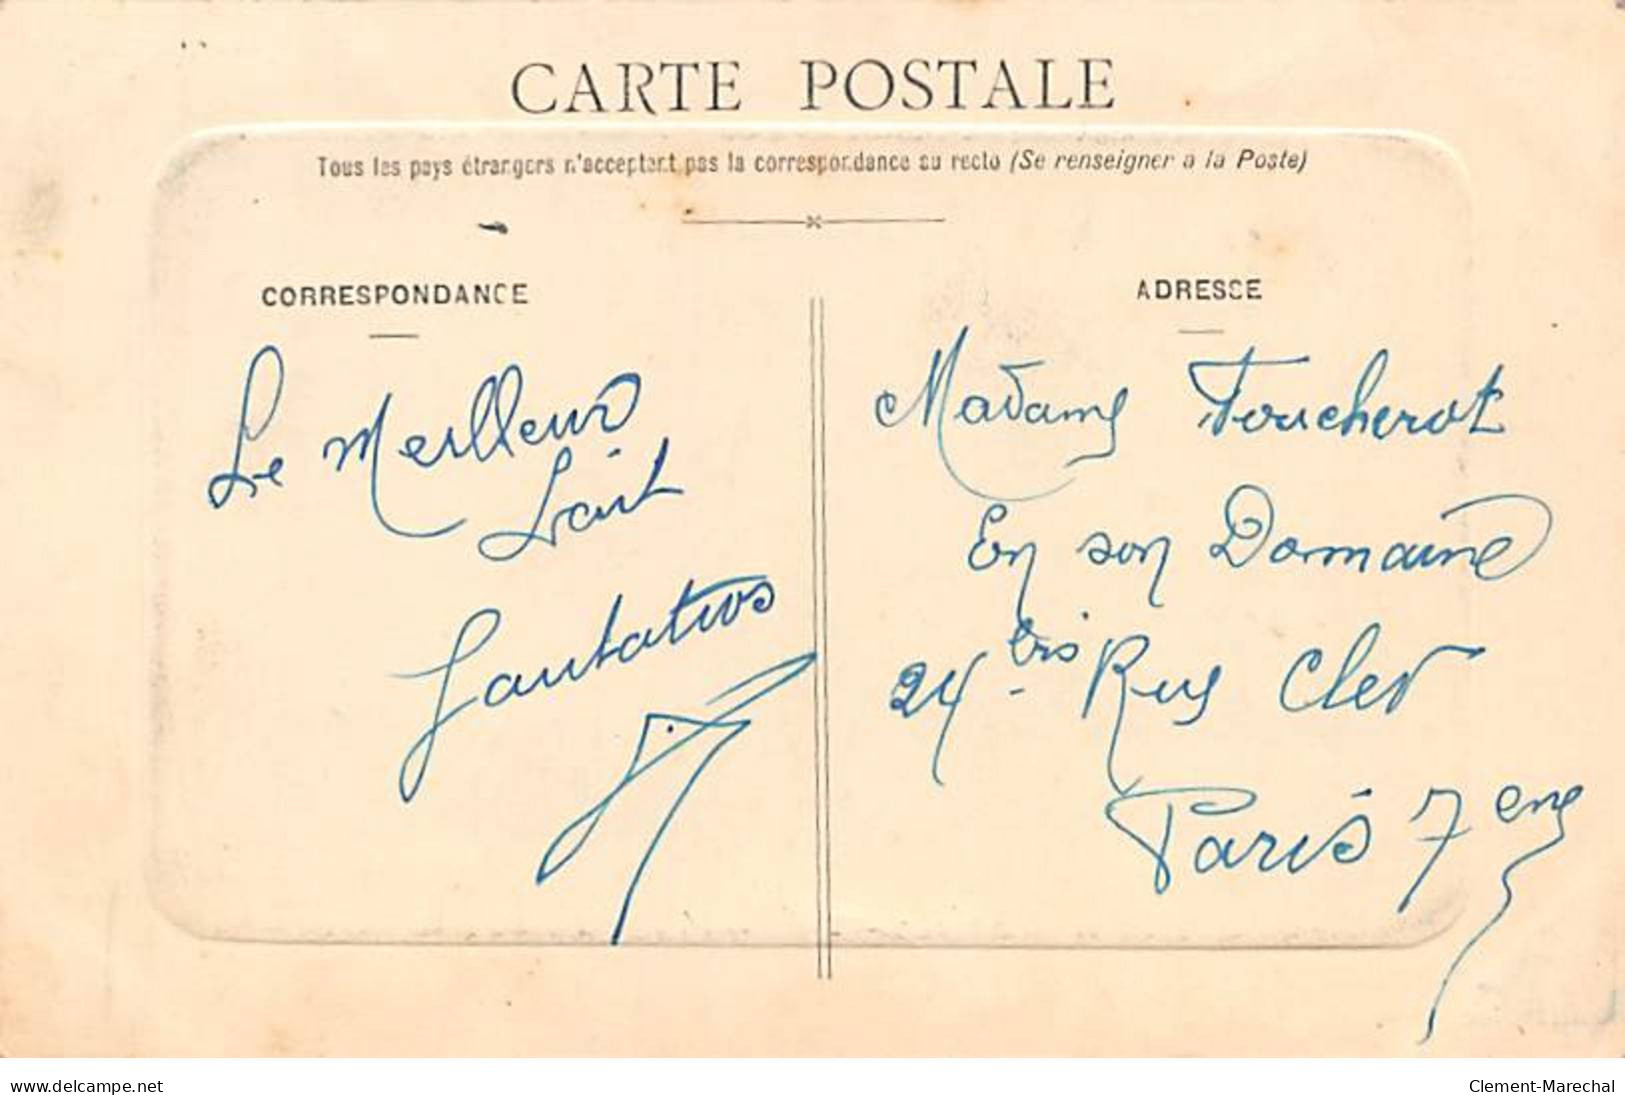 CARTE POSTALE
Tous les pays étrangers n'acceptent pas la correspondance au recto (Se renseigner a la Poste)
CORRESPONDANCE
Le Meilleur
Lait
ADRESSE
Madame Foucherot
En son Domaine
24 bis Rue Cler
Paris 7eme
www.delcampe.net
Clement-Marechal